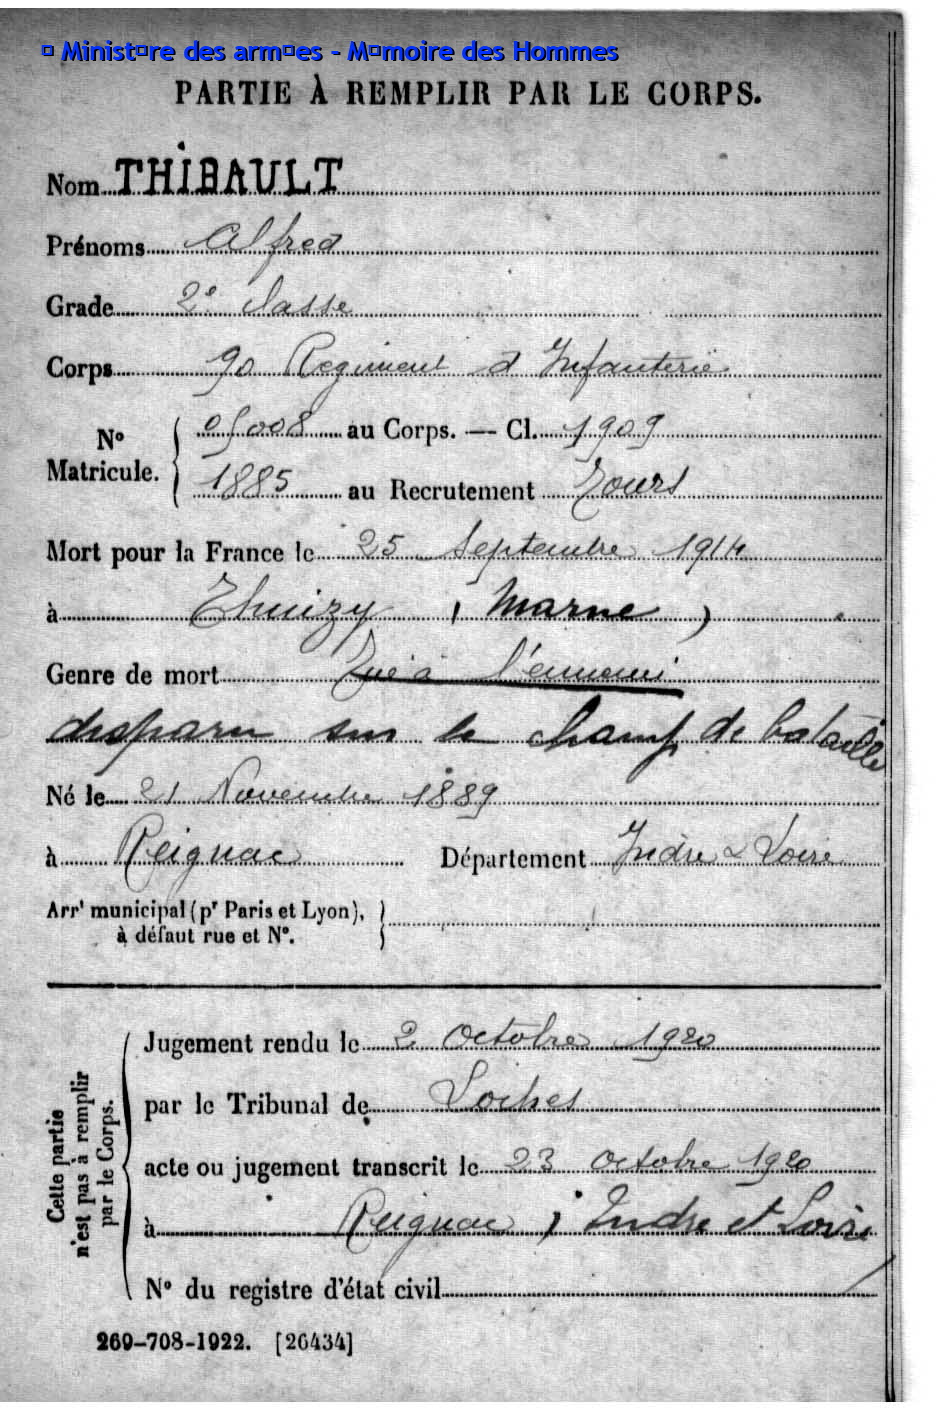 © Ministère des armées - Mémoire des Hommes
PARTIE À REMPLIR PAR LE CORPS.
Nom THIBAULT
Prénoms Alfred
Grade 2e classe
Corps 90 Regiment d Infanterie
No Matricule. 05008 au Corps. — Cl. 1909
1885 au Recrutement Tours
Mort pour la France le 25 Septembre 1914
à Thuizy ( Marne )
Genre de mort Tué à l'ennemi
disparu sur le champ de bataille
Né le 21 Novembre 1889
à Reignac Département Indre & Loire
Arrt municipal (pr Paris et Lyon),
à défaut rue et No.
Cette partie n'est pas à remplir par le Corps.
Jugement rendu le 2 Octobre 1920
par le Tribunal de Loches
acte ou jugement transcrit le 23 octobre 1920
à Reignac, Indre et Loire
No du registre d'état civil
269-708-1922. [26434]